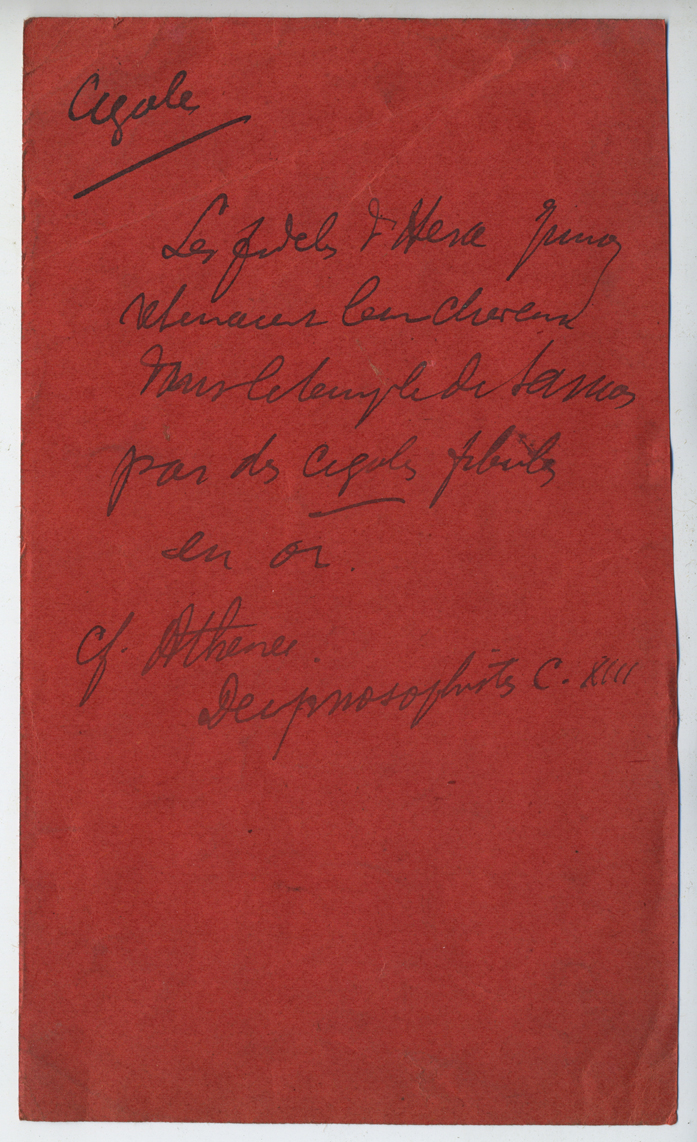 Cigale
Les fidèles d'Hera Junon
retenaient leurs cheveux
dans le temple de Samos
par des cigales fibules
en or.
cf. Athenee.
Deipnosophistes C. XIII